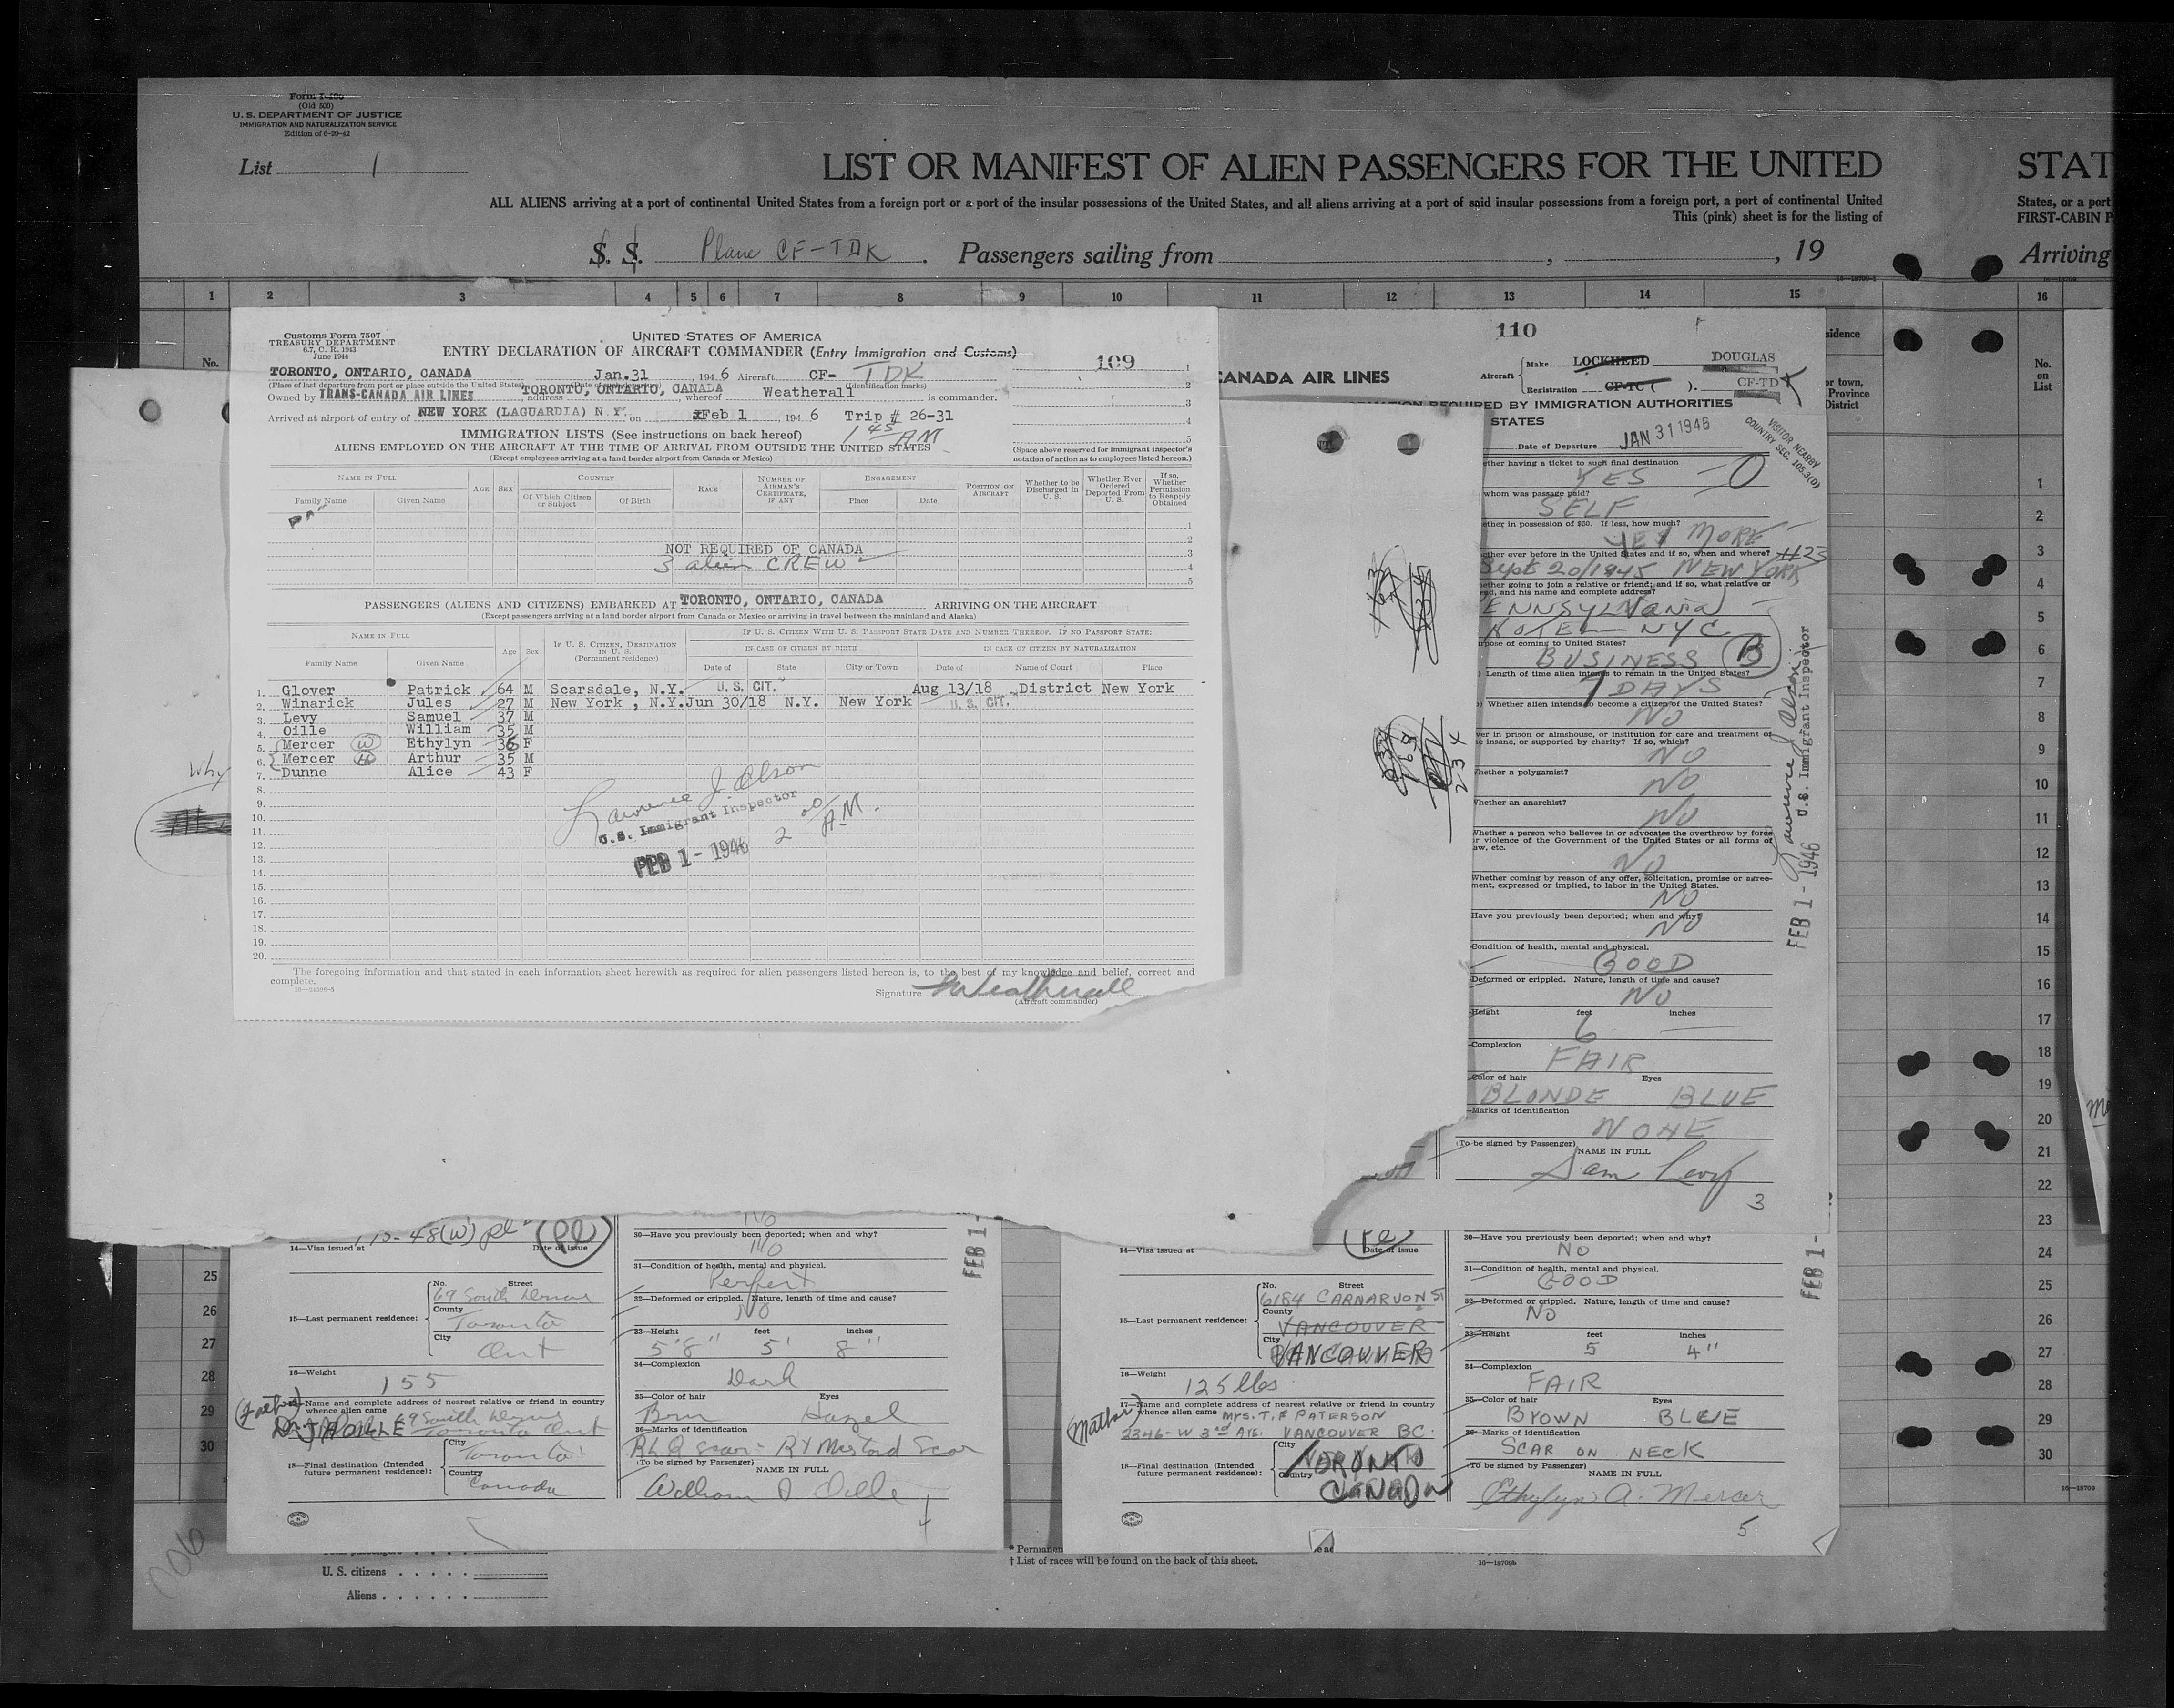 Form I-466
(Old 500)
U. S. DEPARTMENT OF JUSTICE
IMMIGRATION AND NATURALIZATION SERVICE
Edition of 6-20-42
List 1
LIST OR MANIFEST OF ALIEN PASSENGERS FOR THE UNITED STAT
ALL ALIENS arriving at a port of continental United States from a foreign port or a port of the insular possessions of the United States, and all aliens arriving at a port of said insular possessions from a foreign port, a port of continental United States, or a port
This (pink) sheet is for the listing of FIRST-CABIN P
S. S. Plane CF-TDK. Passengers sailing from , , 19 Arriving
1 2 3 4 5 6 7 8 9 10 11 12 13 14 15 16
No.
sidence
or town,
Province
District
No.
on
List
Customs Form 7507
TREASURY DEPARTMENT
6.7, C. R. 1943
June 1944
UNITED STATES OF AMERICA
ENTRY DECLARATION OF AIRCRAFT COMMANDER (Entry Immigration and Customs)
109
TORONTO, ONTARIO, CANADA Jan.31, 1946 Aircraft CF- TDK
(Place of last departure from port or place outside the United States) (Date of such departure) (Identification marks)
Owned by TRANS-CANADA AIR LINES address TORONTO, ONTARIO, CANADA whereof Weatherall is commander.
Arrived at airport of entry of NEW YORK (LAGUARDIA) N.Y. on Feb 1 1946 Trip # 26-31
1 45 AM
IMMIGRATION LISTS (See instructions on back hereof)
ALIENS EMPLOYED ON THE AIRCRAFT AT THE TIME OF ARRIVAL FROM OUTSIDE THE UNITED STATES
(Except employees arriving at a land border airport from Canada or Mexico)
(Space above reserved for immigrant inspector's notation of action as to employees listed hereon.)
NAME IN FULL
Family Name Given Name
AGE SEX
COUNTRY
Of Which Citizen or Subject Of Birth
RACE
NUMBER OF AIRMAN'S CERTIFICATE, IF ANY
ENGAGEMENT
Place Date
POSITION ON AIRCRAFT
Whether to be Discharged in U. S.
Whether Ever Ordered Deported From U. S.
If so, Whether Permission to Reapply Obtained
NOT REQUIRED OF CANADA
3 alien CREW
PASSENGERS (ALIENS AND CITIZENS) EMBARKED AT TORONTO, ONTARIO, CANADA ARRIVING ON THE AIRCRAFT
(Except passengers arriving at a land border airport from Canada or Mexico or arriving in travel between the mainland and Alaska)
NAME IN FULL
Family Name Given Name
Age Sex
IF U. S. CITIZEN, DESTINATION IN U. S. (Permanent residence)
IF U. S. CITIZEN WITH U. S. PASSPORT STATE DATE AND NUMBER THEREOF. IF NO PASSPORT STATE:
IN CASE OF CITIZEN BY BIRTH IN CASE OF CITIZEN BY NATURALIZATION
Date of State City or Town Date of Name of Court Place
1. Glover Patrick 64 M Scarsdale, N.Y. U. S. CIT. Aug 13/18 District New York
2. Winarick Jules 27 M New York , N.Y. Jun 30/18 N.Y. New York U. S. CIT.
3. Levy Samuel 37 M
4. Oille William 35 M
5. Mercer (W) Ethylyn 36 F
6. Mercer (H) Arthur 35 M
7. Dunne Alice 43 F
8.
9.
10.
11.
12.
13.
14.
15.
16.
17.
18.
19.
20.
Why
Lawrence J Olson
U.S. Immigrant Inspector
FEB 1 - 1946 2 00 AM.
The foregoing information and that stated in each information sheet herewith as required for alien passengers listed hereon is, to the best of my knowledge and belief, correct and complete.
Signature Weatherall
(Aircraft commander)
110
CANADA AIR LINES
Aircraft Make LOCKHEED DOUGLAS
Registration CF-TC ( ). CF-TD K
REQUIRED BY IMMIGRATION AUTHORITIES
STATES
Date of Departure JAN 31 1946
VISITOR NEARBY
COUNTRY SEC. 105.3(D)
ether having a ticket to such final destination
YES
whom was passage paid?
SELF
ether in possession of $50. If less, how much?
YES MORE
ether ever before in the United States and if so, when and where?
Sept 20/1945 NEW YORK
ether going to join a relative or friend; and if so, what relative or
nd, and his name and complete address?
ENNSYLVania
HOTEL NYC
urpose of coming to United States?
BUSINESS (B)
Length of time alien intends to remain in the United States?
7 DAYS
Whether alien intends to become a citizen of the United States?
NO
ver in prison or almshouse, or institution for care and treatment of
e insane, or supported by charity? If so, which?
NO
Whether a polygamist?
NO
Whether an anarchist?
NO
Whether a person who believes in or advocates the overthrow by force
or violence of the Government of the United States or all forms of
law, etc.
NO
Whether coming by reason of any offer, solicitation, promise or agree-
ment, expressed or implied, to labor in the United States.
NO
Have you previously been deported; when and why?
NO
Condition of health, mental and physical.
GOOD
Deformed or crippled. Nature, length of time and cause?
NO
Height feet inches
6
Complexion
FAIR
Color of hair Eyes
BLONDE BLUE
Marks of identification
NONE
(To be signed by Passenger) NAME IN FULL
Sam Levy
3
FEB 1 - 1946 Lawrence J Olson U.S. Immigrant Inspector
234
14—Visa issued at Date of issue
No. Street
69 South Drive
County
Toronto
15—Last permanent residence:
City
Ont
16—Weight
155
17—Name and complete address of nearest relative or friend in country
whence alien came
(Father)
69 South Drive
Toronto Ont
18—Final destination (Intended future permanent residence):
City
Toronto
Country
Canada
NO
30—Have you previously been deported; when and why?
NO
31—Condition of health, mental and physical.
Perfect
32—Deformed or crippled. Nature, length of time and cause?
NO
33—Height feet inches
5'8" 5' 8"
34—Complexion
Dark
35—Color of hair Eyes
Brn Hazel
36—Marks of identification
(To be signed by Passenger)
NAME IN FULL
4
FEB 1-
14—Visa issued at Date of issue
No. Street
6184 CARNARVON ST
County
VANCOUVER
15—Last permanent residence:
City
VANCOUVER
16—Weight
125 lbs
17—Name and complete address of nearest relative or friend in country
whence alien came MRS. T. F PATERSON
(Mother)
2346- W 3rd AVE. VANCOUVER BC.
18—Final destination (Intended future permanent residence):
City
TORONTO
Country
CANADA
30—Have you previously been deported; when and why?
NO
31—Condition of health, mental and physical.
GOOD
32—Deformed or crippled. Nature, length of time and cause?
NO
33—Height feet inches
5 4"
34—Complexion
FAIR
35—Color of hair Eyes
BROWN BLUE
36—Marks of identification
SCAR ON NECK
(To be signed by Passenger)
NAME IN FULL
Ethylyn A. Mercer
5
FEB 1-
1
2
3
4
5
6
7
8
9
10
11
12
13
14
15
16
17
18
19
20
21
22
23
24
25
26
27
28
29
30
25
26
27
28
29
30
U. S. citizens
Aliens
* Permanen
† List of races will be found on the back of this sheet.
16—18709b
16—18709